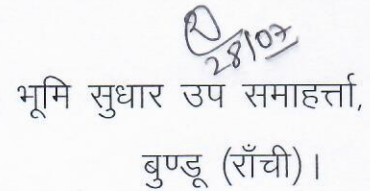 28/07
भूमि सुधार उप समाहर्त्ता,
बुण्डू (राँची)।